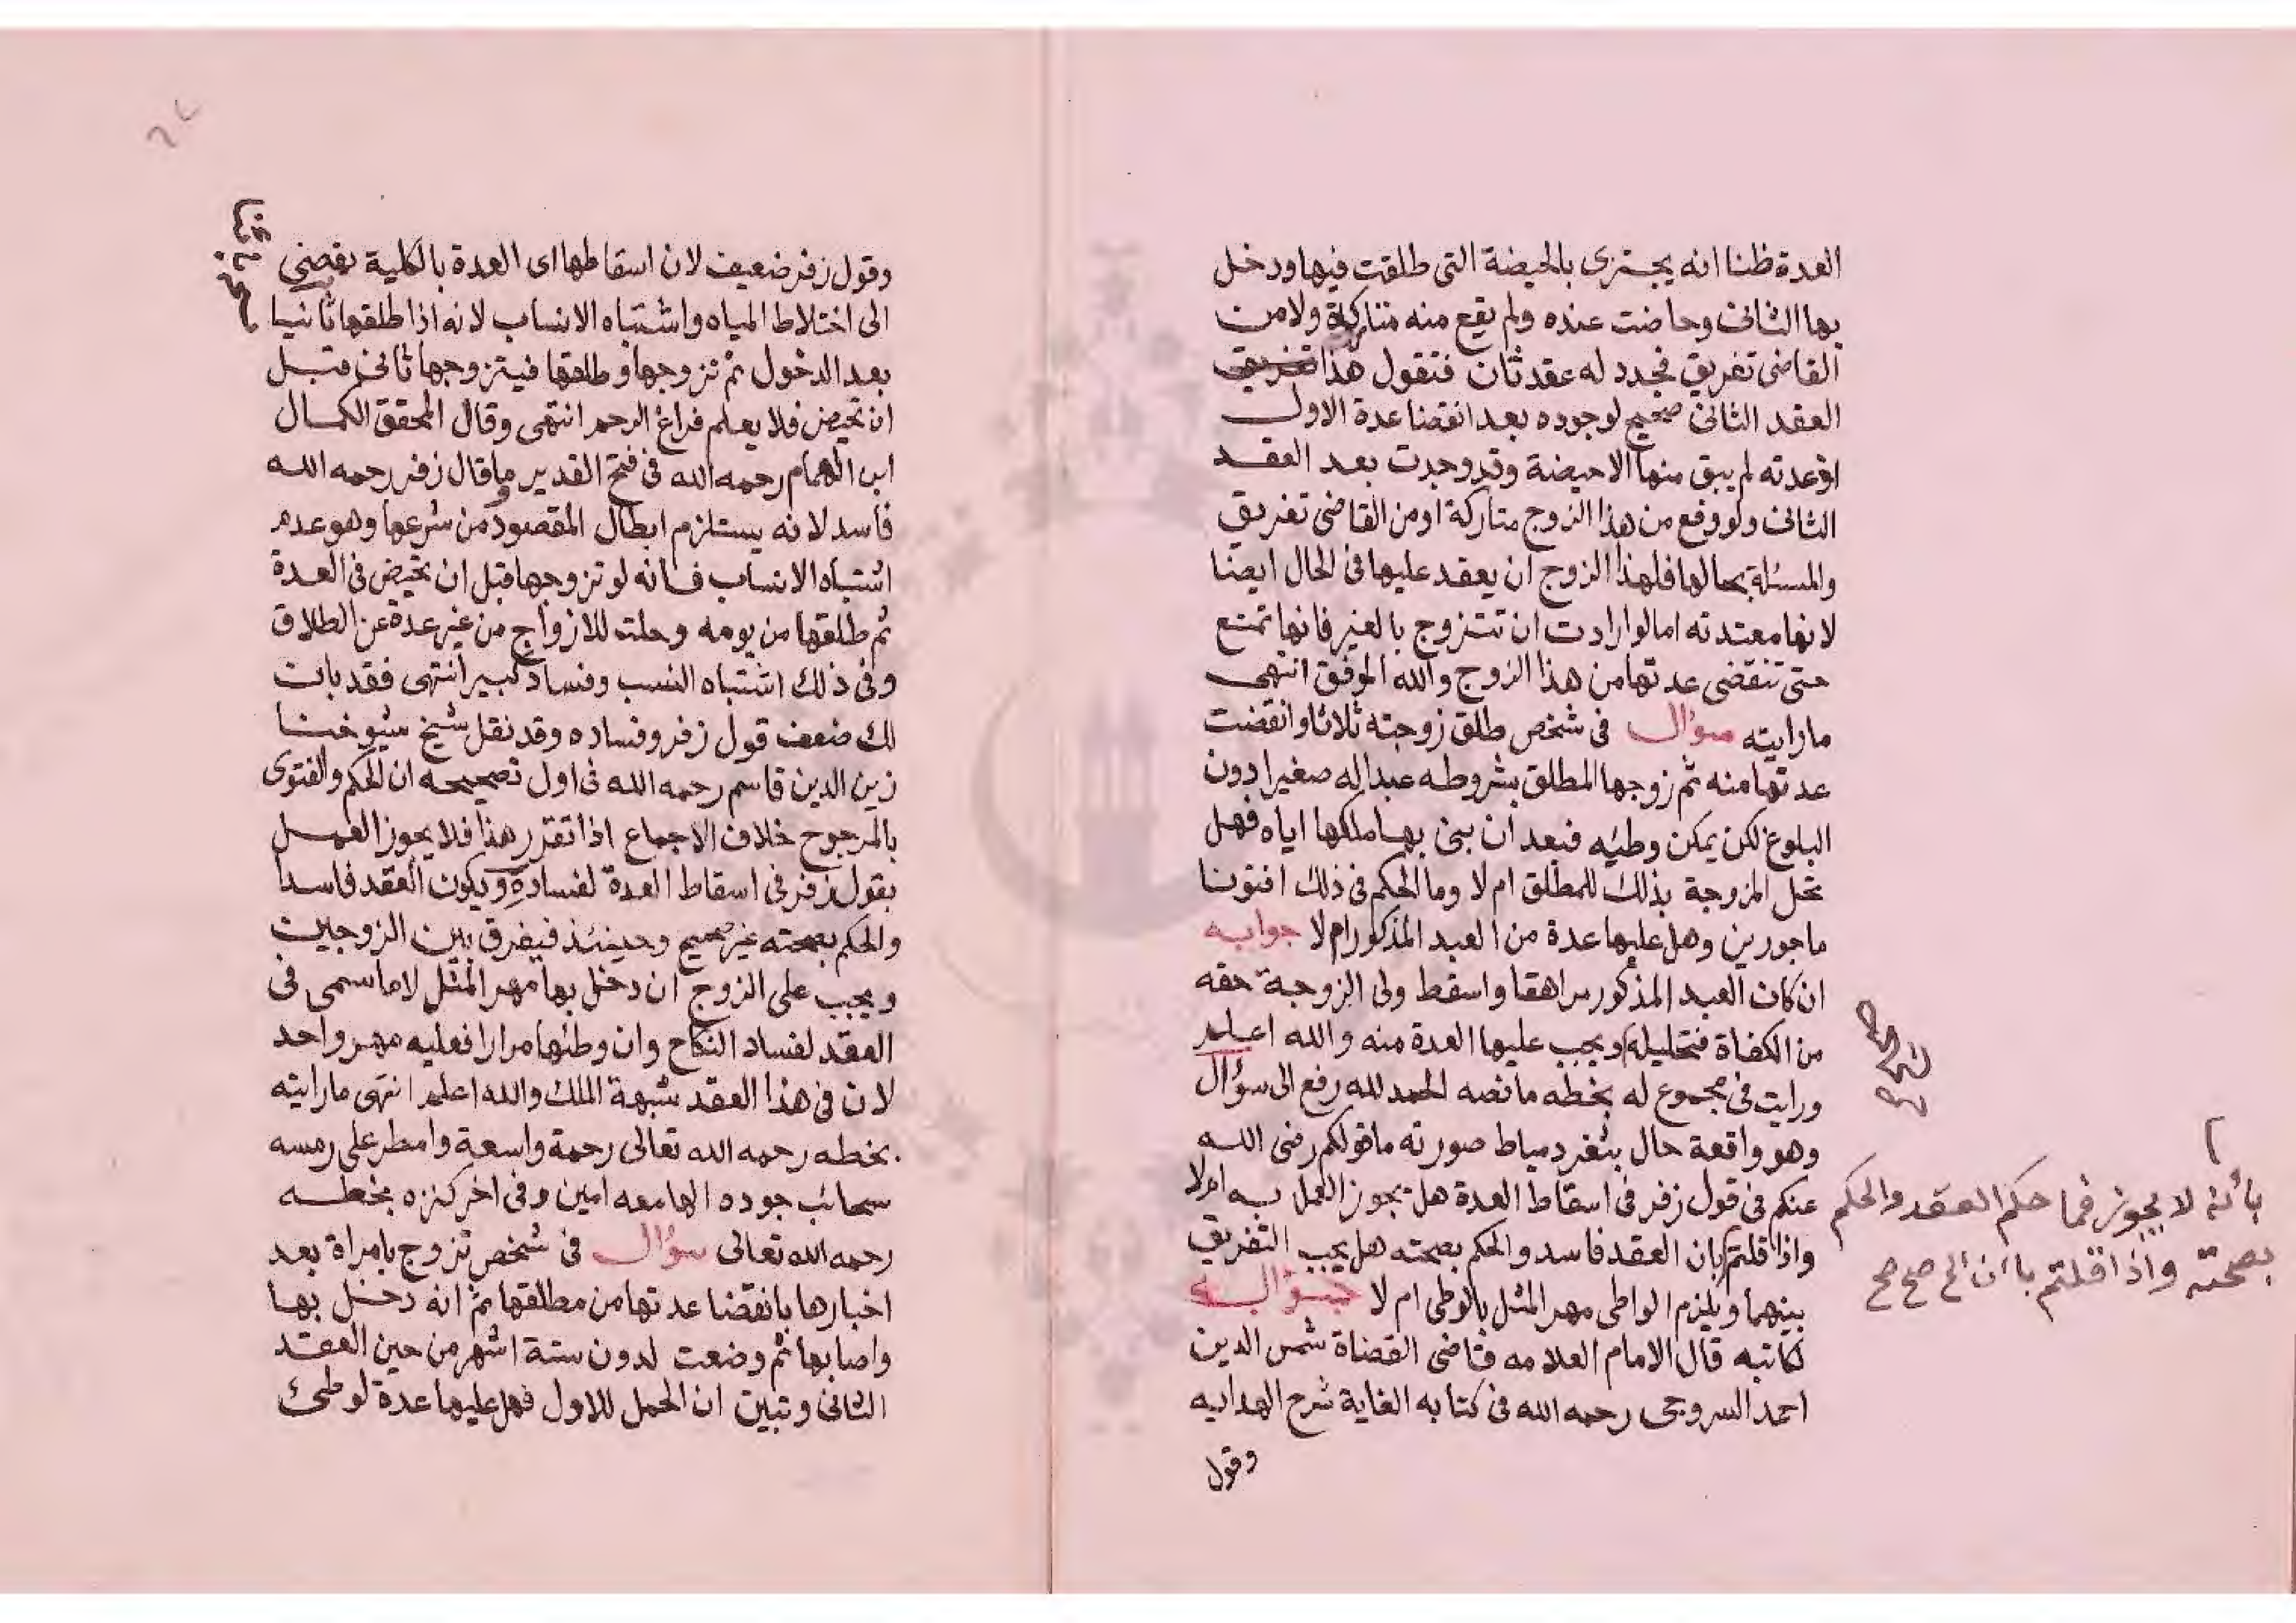 العدة ظنا انه يجتزى بالحيضة التى طلقت فيها ودخل
بها الثانى وحاضت عنده ولم يقع منه متاركة ولا من
القاضى تفريق فجدد له عقد ثان فنقول هذا
العقد الثانى صحيح لوجوده بعد انقضا عدة الاول
اذ عدته لم يبق منها الا حيضة وقد وجدت بعد العقد
الثانى ولو وقع من هذا الزوج متاركة او من القاضى تفريق
والمسئلة بحالها فلهذا الزوج ان يعقد عليها فى الحال ايضا
لانها معتدته اما لو ارادت ان تتزوج بالغير فانها تمتنع
حتى تنقضى عدتها من هذا الزوج والله الموفق انتهى
ما رايته سؤال فى شخص طلق زوجته ثلاثا وانقضت
عدتها منه ثم زوجها المطلق بشروطه عبدا له صغيرا دون
البلوغ لكن يمكن وطئيه فبعد ان بنى بها ملكها اياه فهل
تحل المزوجة بذلك للمطلق ام لا وما الحكم فى ذلك افتونا
ماجورين وهل عليها عدة من العبد المذكور ام لا جوابه
ان كان العبد المذكور مراهقا واسقط ولى الزوجة حقه
من الكفاة فتحليله ويجب عليها العدة منه والله اعلم
ورايت فى مجموع له بخطه ما نصه الحمد لله رفع الى سؤال
وهو واقعة حال بثغر دمياط صورته ما قولكم رضى الله
عنكم فى قول زفر فى اسقاط العدة هل يجوز العمل به ام لا
واذا قلتم بان العقد فاسد والحكم بصحته هل يجب التفريق
بينهما ويلزم الواطى مهر المثل بالوطى ام لا
لكاتبه قال الامام العلامه قاضى القضاة شمس الدين
احمد السروجى رحمه الله فى كتابه الغاية شرح الهدايه
وقول
بأنه لا يجوز فما حكم العقد والحكم
بصحته واذا قلتم باان الخ صح صح
وقول زفر ضعيف لان اسقاطها اى العدة بالكلية يفضى
الى اختلاط المياه واشتباه الانساب لانه اذا طلقها ثانيا
بعد الدخول ثم تزوجها وطلقها فيتزوجها ثانى قبل
ان تحيض فلا يعلم فراغ الرحم انتهى وقال المحقق الكمال
ابن الهمام رحمه الله فى فتح القدير وما قال زفر رحمه الله
فاسد لانه يستلزم ابطال المقصود من شرعها وهو عدم
اشتباه الانساب فانه لو تزوجها قبل ان تحيض فى العدة
ثم طلقها من يومه وحلت للازواج من غير عدة عن الطلاق
وفى ذلك اشتباه النسب وفساد كبير انتهى فقد بان
لك ضعف قول زفر وفساده وقد نقل شيخ شيوخنا
زين الدين قاسم رحمه الله فى اول تصحيحه ان الحكم والفتوى
بالمرجوح خلاف الاجماع اذا تقرر هذا فلا يجوز العمل
بقول زفر فى اسقاط العدة لفساده ويكون العقد فاسدا
والحكم بصحته غير صحيح وحينئذ فيفرق بين الزوجين
ويجب على الزوج ان دخل بها مهر المثل لا ما سمى فى
العقد لفساد النكاح وان وطئها مرارا فعليه مهر واحد
لان فى هذا العقد شبهة الملك والله اعلم انتهى ما رايته
بخطه رحمه الله تعالى رحمة واسعة وامطر على رمسه
سحائب جوده الهامعه امين وفى اخر كنزه بخطه
رحمه الله تعالى سؤال فى شخص تزوج بامراة بعد
اخبارها بانقضا عدتها من مطلقها ثم انه دخل بها
واصابها ثم وضعت لدون ستة اشهر من حين العقد
الثانى وتبين ان الحمل للاول فهل عليها عدة لوطئ